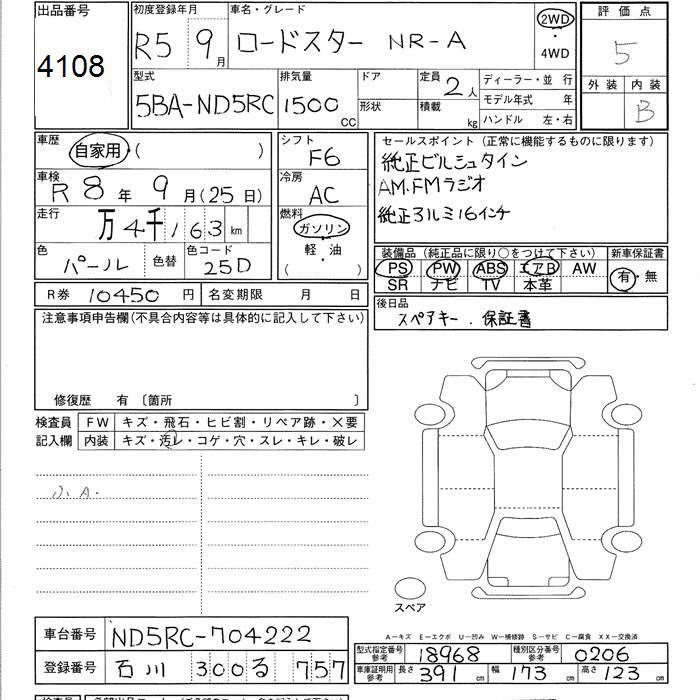 出品番号 初度登録年月 車名・グレード 2WD 評価点
4108 R5 9月 ロードスター NR-A ・ 5
4WD
型式 排気量 ドア 定員 2人 ディーラー・並行 外装 内装
5BA-ND5RC 1500cc 形状 積載 kg モデル年式 年 B
ハンドル 左・右
車歴 自家用・( ) シフト F6 セールスポイント (正常に機能するものに限ります)
車検 R8年9月(25日) 冷房 AC 純正ビルシュタイン
AM.FMラジオ
走行 万4千163km 燃料 ガソリン 純正アルミ16インチ
軽・油
色 パール 色替 色コード 25D ( ) 装備品 (純正品に限り○をつけて下さい) 新車保証書
PS PW ABS エアB AW 有・無
R券 10450円 名変期限 月 日 SR ナビ TV 本革
注意事項申告欄(不具合内容等は具体的に記入して下さい) 後日品
スペアキー.保証書
修復歴 有 〔箇所 〕
検査員 FW キズ・飛石・ヒビ割・リペア跡・×要
記入欄 内装 キズ・汚レ・コゲ・穴・スレ・キレ・破レ
スペア
A-キズ E-エクボ U-凹み W-補修跡 S-サビ C-腐食 XX-交換済
車台番号 ND5RC-704222
型式指定番号参考 18968 種別区分番号参考 0206
登録番号 石川 300る 757
車庫証明用参考 長さ 391cm 幅 173cm 高さ 123cm